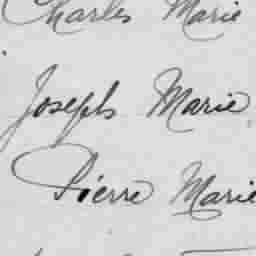 Charles Marie
Joseph Marie
Pierre Marie